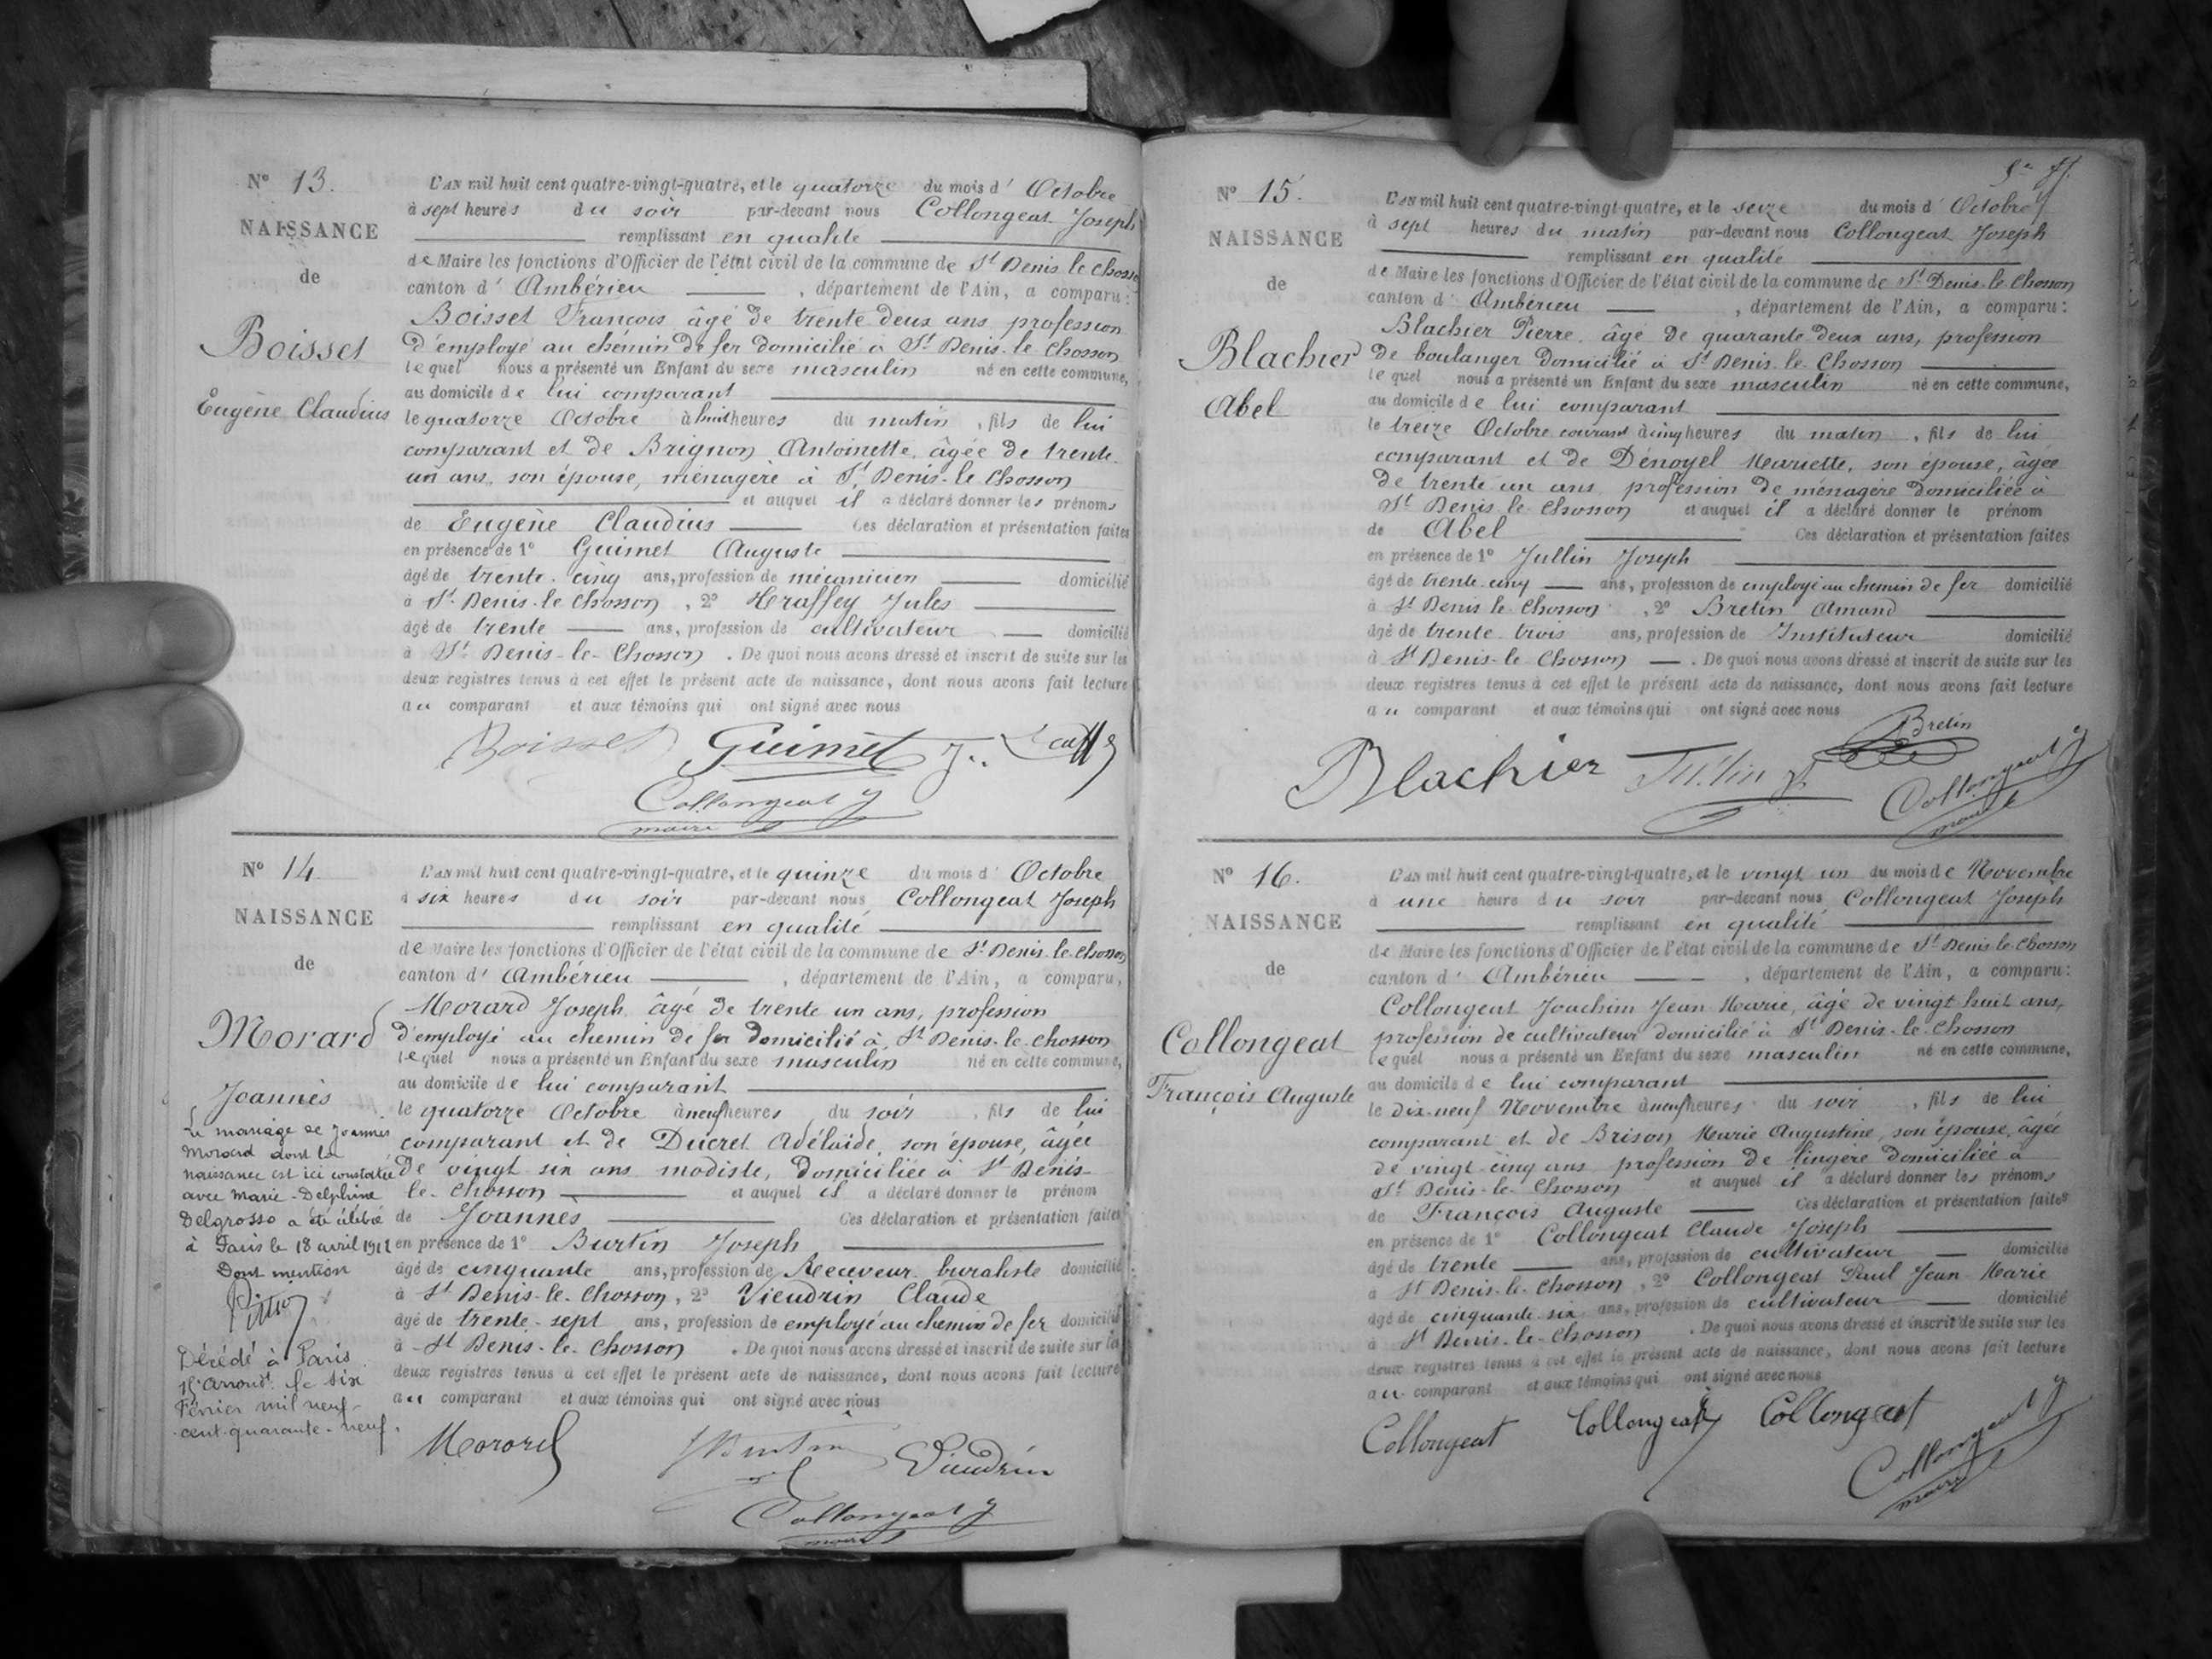 N° 13.
NAISSANCE
de
Boisset
Eugène Claudius
L'AN mil huit cent quatre-vingt-quatre, et le quatorze du mois d' Octobre
à sept heures du soir par-devant nous Collongeat Joseph
remplissant en qualité
de Maire les fonctions d'Officier de l'état civil de la commune de St Denis le Chosson
canton d' Ambérieu , département de l'Ain, a comparu :
Boisset François âgé de trente deux ans profession
d'employé au chemin de fer domicilié à St Denis-le Chosson
lequel nous a présenté un Enfant du sexe masculin né en cette commune,
au domicile de lui comparant
le quatorze Octobre à huit heures du matin , fils de lui
comparant et de Brignon Antoinette, âgée de trente-
un ans, son épouse, ménagère à St Denis-le Chosson
et auquel il a déclaré donner les prénoms
de Eugène Claudius Ces déclaration et présentation faites
en présence de 1° Guimet Auguste
âgé de trente-cinq ans, profession de mécanicien domicilié
à St Denis-le Chosson , 2° Jules
âgé de trente ans, profession de cultivateur domicilié
à St Denis-le-Chosson . De quoi nous avons dressé et inscrit de suite sur les
deux registres tenus à cet effet le présent acte de naissance, dont nous avons fait lecture
au comparant et aux témoins qui ont signé avec nous
Boisset Guimet J.
Collongeat J
maire
N° 14
NAISSANCE
de
Morard
Joannès
Le mariage de Joannès
Morard dont la
naissance est ici constatée
avec Marie-Delphine
Delgrosso a été célébré
à Paris le 18 avril 1912
Dont mention
Décédé à Paris
15e arrondt. le six
Février mil neuf-
cent-quarante-neuf.
L'AN mil huit cent quatre-vingt-quatre, et le quinze du mois d' Octobre
à six heures du soir par-devant nous Collongeat Joseph
remplissant en qualité
de Maire les fonctions d'Officier de l'état civil de la commune de St Denis-le-Chosson
canton d' Ambérieu , département de l'Ain, a comparu,
Morard Joseph, âgé de trente un ans, profession
d'employé au chemin de fer domicilié à St Denis-le-Chosson
lequel nous a présenté un Enfant du sexe masculin né en cette commune,
au domicile de lui comparant
le quatorze Octobre à neuf heures du soir , fils de lui
comparant et de Ducret Adélaïde, son épouse, âgée
de vingt six ans modiste, domiciliée à St Denis-
le-Chosson et auquel il a déclaré donner le prénom
de Joannès Ces déclaration et présentation faites
en présence de 1° Burtin Joseph
âgé de cinquante ans, profession de Receveur buraliste domicilié
à St Denis-le-Chosson, 2° Vieudrin Claude
âgé de trente-sept ans, profession de employé au chemin de fer domicilié
à St Denis-le-Chosson . De quoi nous avons dressé et inscrit de suite sur les
deux registres tenus à cet effet le présent acte de naissance, dont nous avons fait lecture
au comparant et aux témoins qui ont signé avec nous
Morard Burtin Vieudrin
Collongeat J
maire
N° 15.
NAISSANCE
de
Blachier
Abel
L'AN mil huit cent quatre-vingt-quatre, et le seize du mois d' Octobre
à sept heures du matin par-devant nous Collongeat Joseph
remplissant en qualité
de Maire les fonctions d'Officier de l'état civil de la commune de St Denis-le Chosson
canton d' Ambérieu , département de l'Ain, a comparu :
Blachier Pierre âgé de quarante deux ans, profession
de boulanger domicilié à St Denis-le-Chosson
lequel nous a présenté un Enfant du sexe masculin né en cette commune,
au domicile de lui comparant
le treize Octobre courant à cinq heures du matin , fils de lui
comparant et de Dénoyel Mariette, son épouse, âgée
de trente un ans, profession de ménagère domiciliée à
St Denis-le-Chosson et auquel il a déclaré donner le prénom
de Abel Ces déclaration et présentation faites
en présence de 1° Jullin Joseph
âgé de trente-cinq ans, profession de employé au chemin de fer domicilié
à St Denis le Chosson , 2° Bretin Amand
âgé de trente-trois ans, profession de Instituteur domicilié
à St Denis-le Chosson . De quoi nous avons dressé et inscrit de suite sur les
deux registres tenus à cet effet le présent acte de naissance, dont nous avons fait lecture
au comparant et aux témoins qui ont signé avec nous
Bretin
Blachier Jullin J
Collongeat J
maire
N° 16.
NAISSANCE
de
Collongeat
François Auguste
L'AN mil huit cent quatre-vingt-quatre, et le vingt un du mois de Novembre
à une heure du soir par-devant nous Collongeat Joseph
remplissant en qualité
de Maire les fonctions d'Officier de l'état civil de la commune de St Denis-le-Chosson
canton d' Ambérieu , département de l'Ain, a comparu :
Collongeat Joachim Jean Marie, âgé de vingt huit ans,
profession de cultivateur domicilié à St Denis-le-Chosson
lequel nous a présenté un Enfant du sexe masculin né en cette commune,
au domicile de lui comparant
le dix-neuf Novembre à neuf heures du soir , fils de lui
comparant et de Brison Marie Augustine, son épouse, âgée
de vingt-cinq ans profession de lingère domiciliée à
St Denis-le-Chosson et auquel il a déclaré donner les prénoms
de François Auguste Ces déclaration et présentation faites
en présence de 1° Collongeat Claude Joseph
âgé de trente ans, profession de cultivateur domicilié
à St Denis-le-Chosson , 2° Collongeat Paul Jean Marie
âgé de cinquante-six ans, profession de cultivateur domicilié
à St Denis-le-Chosson . De quoi nous avons dressé et inscrit de suite sur les
deux registres tenus à cet effet le présent acte de naissance, dont nous avons fait lecture
au comparant et aux témoins qui ont signé avec nous
Collongeat Collongeat Collongeat
Collongeat J
maire